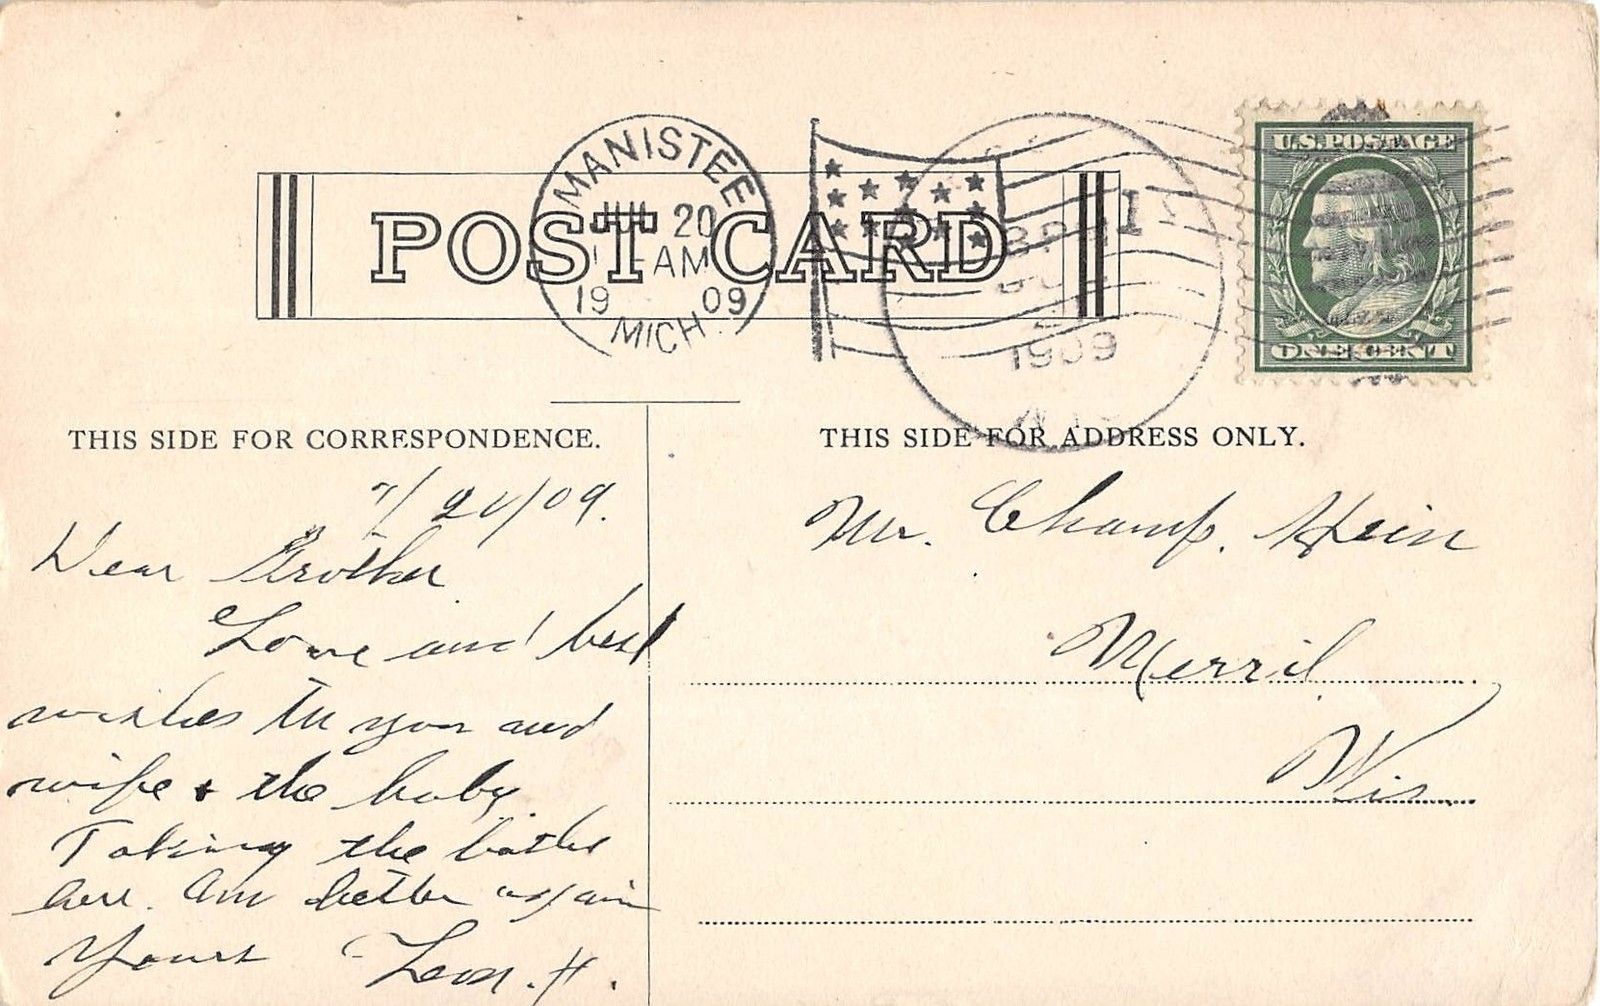 MANISTEE
JUL 20
AM
19 09
MICH.
POST CARD
1909
U.S. POSTAGE
ONE CENT
THIS SIDE FOR CORRESPONDENCE.
7/20/09.
Dear Brother
Love and best
wishes to you and
wife + the baby.
Taking the baths
here. Am better again
Yours Leon. H.
THIS SIDE FOR ADDRESS ONLY.
Mr. Champ. Hein
Merril
Wis